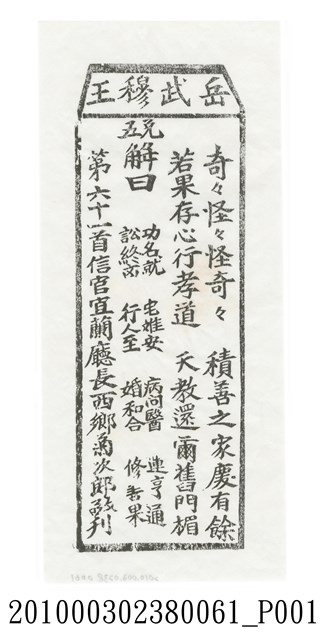 岳武穆王
奇々怪々怪奇々　積善之家慶有餘
若果存心行孝道　天教還爾舊門楣
解曰
功名就　宅雖安　病問醫　運亨通
訟終　行人至　婚和合　修善果
第六十一首信官宜蘭廳長西鄉菊次郎敬刊
201000302380061_P001